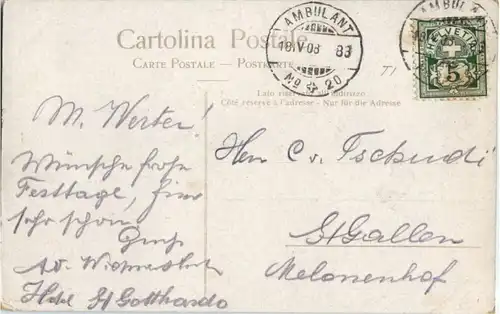 Cartolina Postale
CARTE POSTALE – POSTKARTE
Lato riservato
Côté réservé à l'adresse - Nur für die Adresse
AMBULANT
18.IV.08 83
No 20
AMBULANT
HELVETIA
5
M. Werter!
Wünsche frohe
Festtage, hier
sehr schön
Gruß
Hotel St Gotthardo
Herr C v. Tschudi
St Gallen
Melonenhof